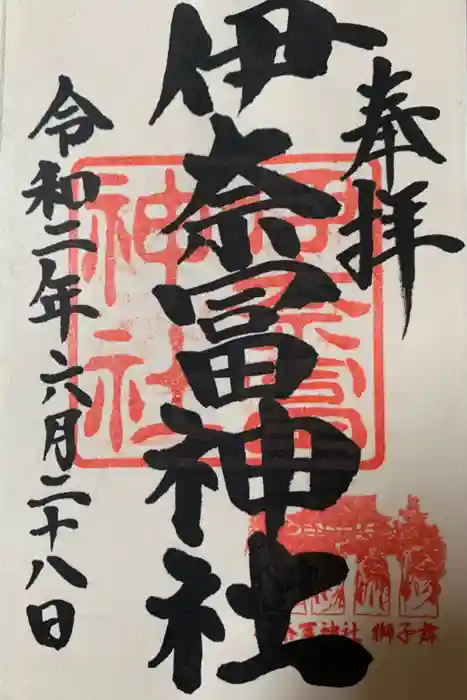 奉拝
伊奈冨神社
令和二年六月二十八日
伊奈冨神社
奈冨神社 獅子舞